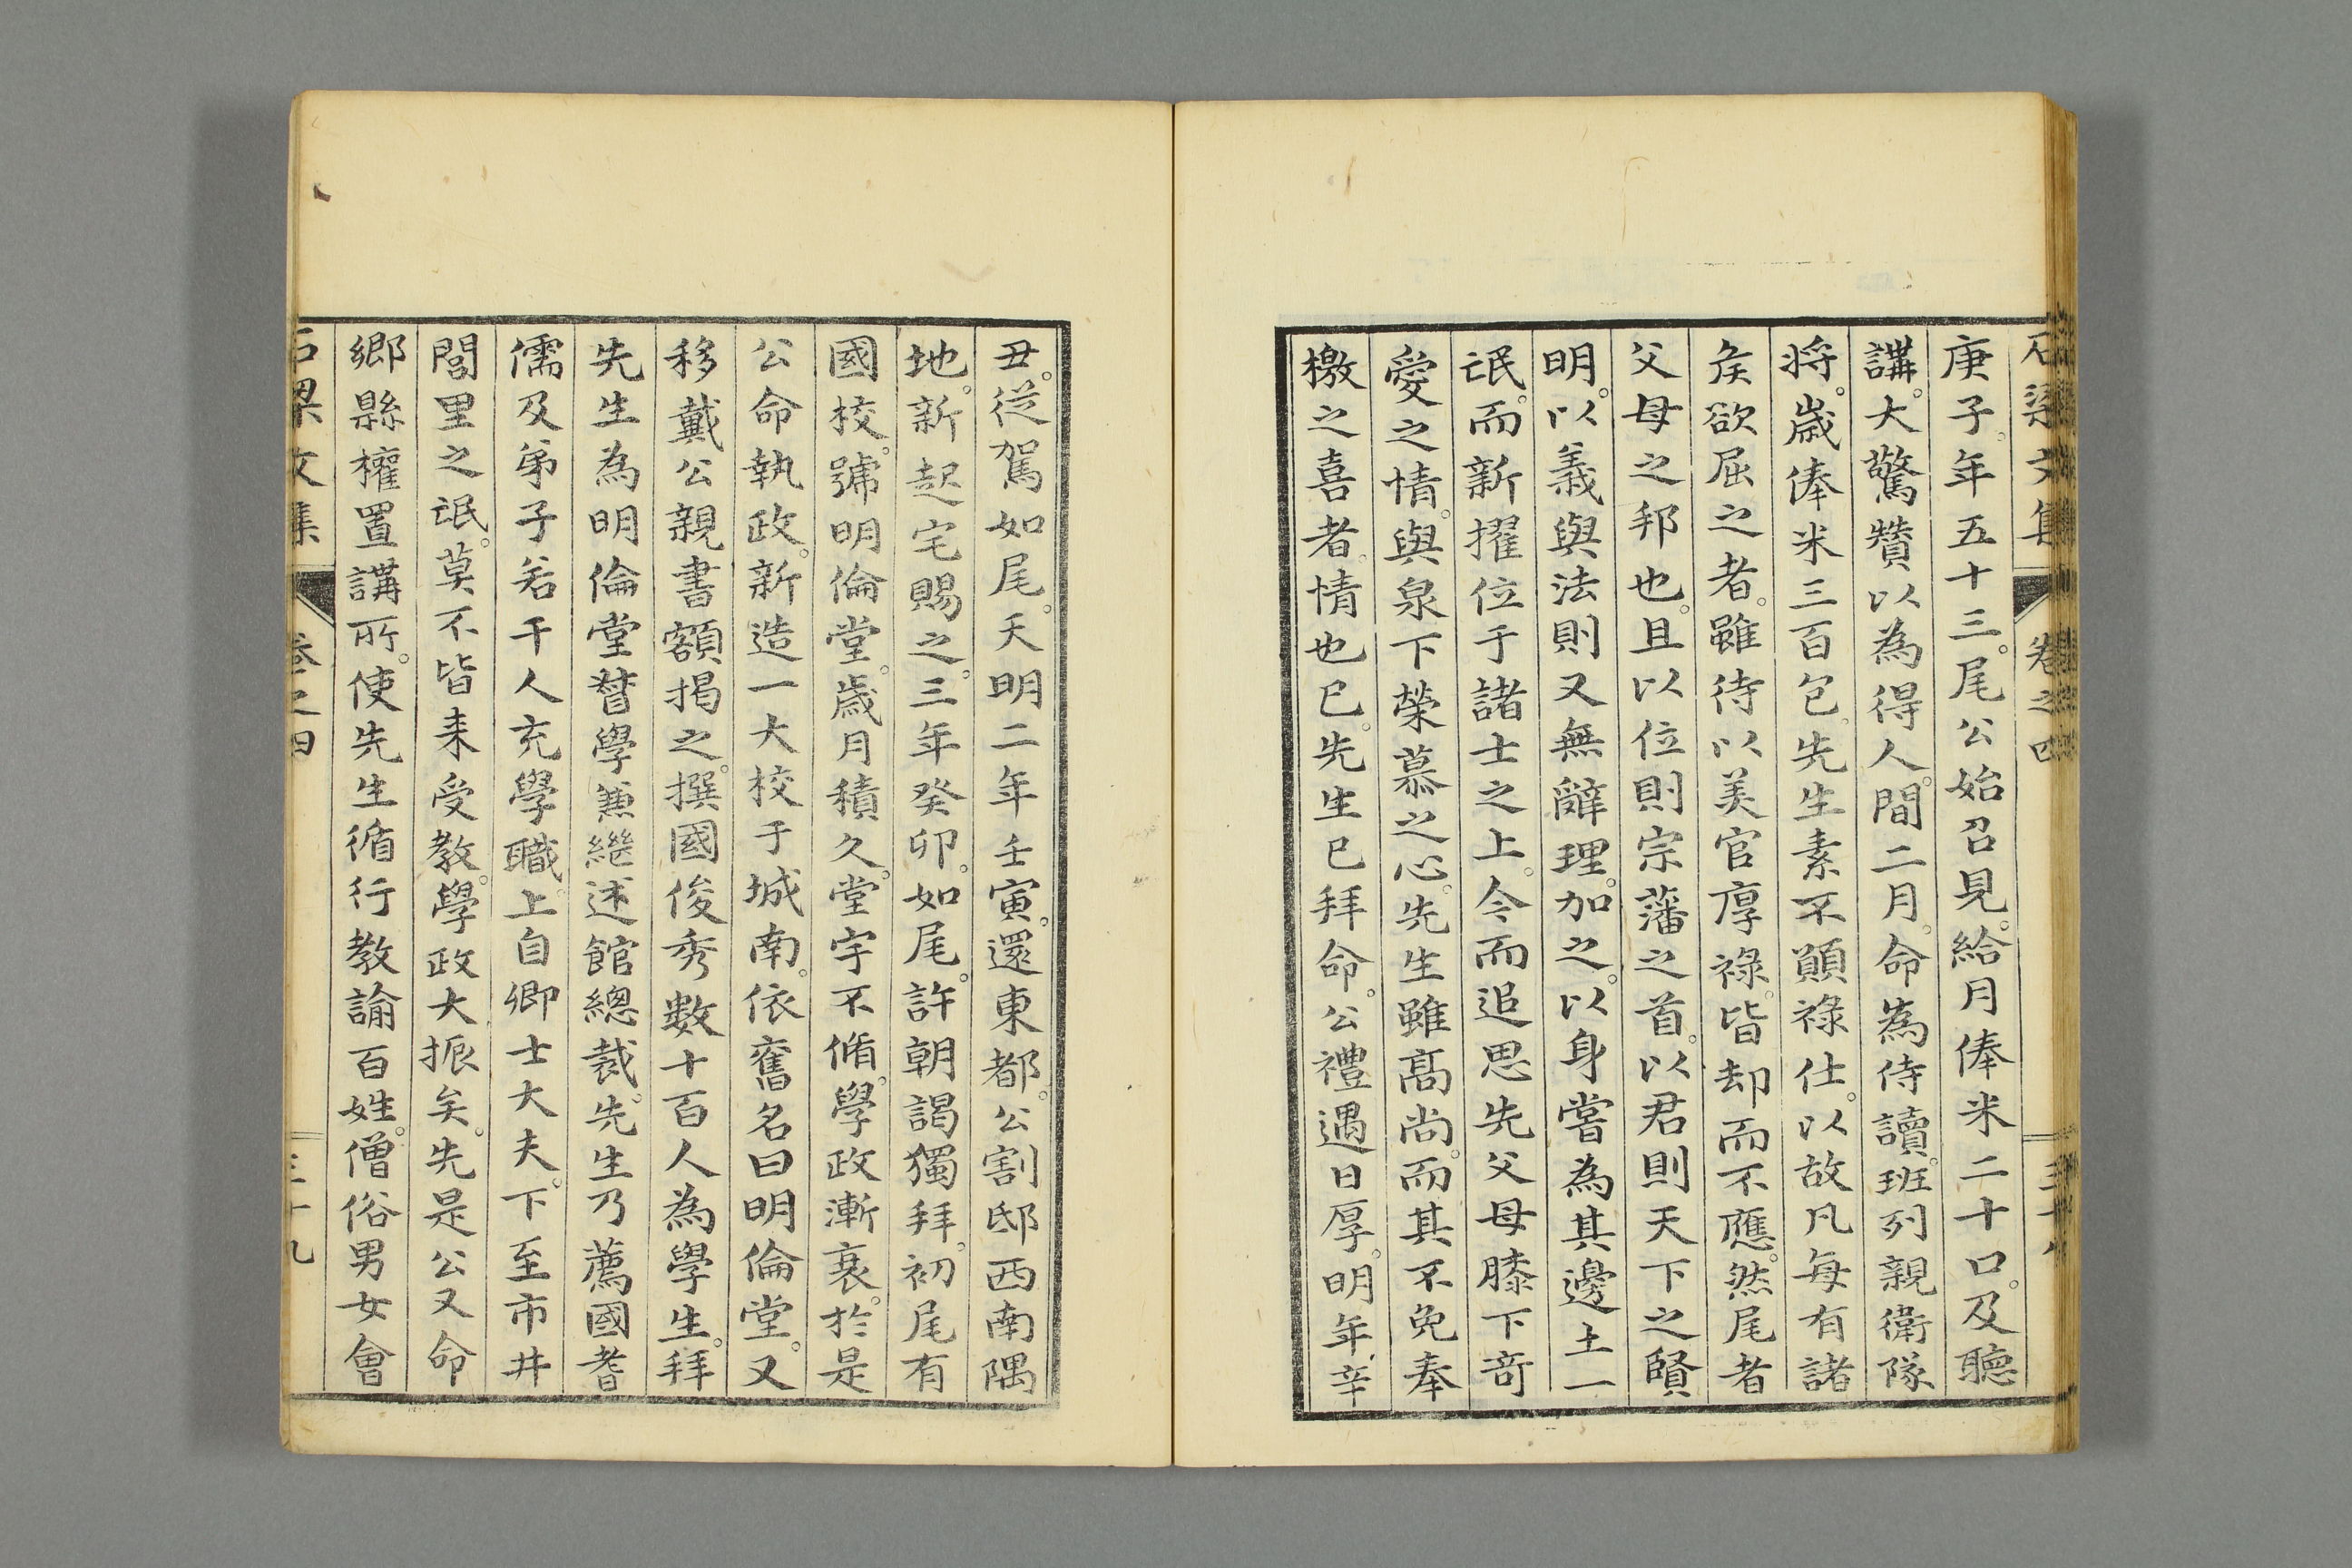 石梁文集 卷之四
庚子。年五十三。尾公始召見。給月俸米二十口。及聽
講。大驚贊以為得人。間二月。命為侍讀。班列親衛隊
將。歲俸米三百包。先生素不願祿仕。以故凡每有諸
矦欲屈之者。雖待以美官厚祿。皆却而不應。然尾者
父母之邦也。且以位則宗藩之首。以君則天下之賢
明。以義與法則又無辭理。加之。以身嘗為其邊土一
氓。而新擢位于諸士之上。今而追思先父母膝下奇
愛之情。與泉下榮慕之心。先生雖髙尚。而其不免奉
檄之喜者。情也已。先生已拜命。公禮遇日厚。明年辛
丑。從駕如尾。天明二年壬寅。還東都。公割邸西南隅
地。新起宅賜之。三年癸卯。如尾。許朝謁獨拜。初尾有
國校。號明倫堂。歲月積久。堂宇不脩。學政漸衰。於是
公命執政。新造一大校于城南。依舊名曰明倫堂。又
移戴公親書額掲之。撰國俊秀數十百人為學生。拜
先生為明倫堂督學兼繼述館總裁。先生乃薦國耆
儒及弟子若干人充學職。上自卿士大夫。下至市井
閭里之氓。莫不皆来受教。學政大振矣。先是公又命
鄉縣權置講所。使先生循行教諭百姓。僧俗男女會
石梁文集 卷之四 三十九